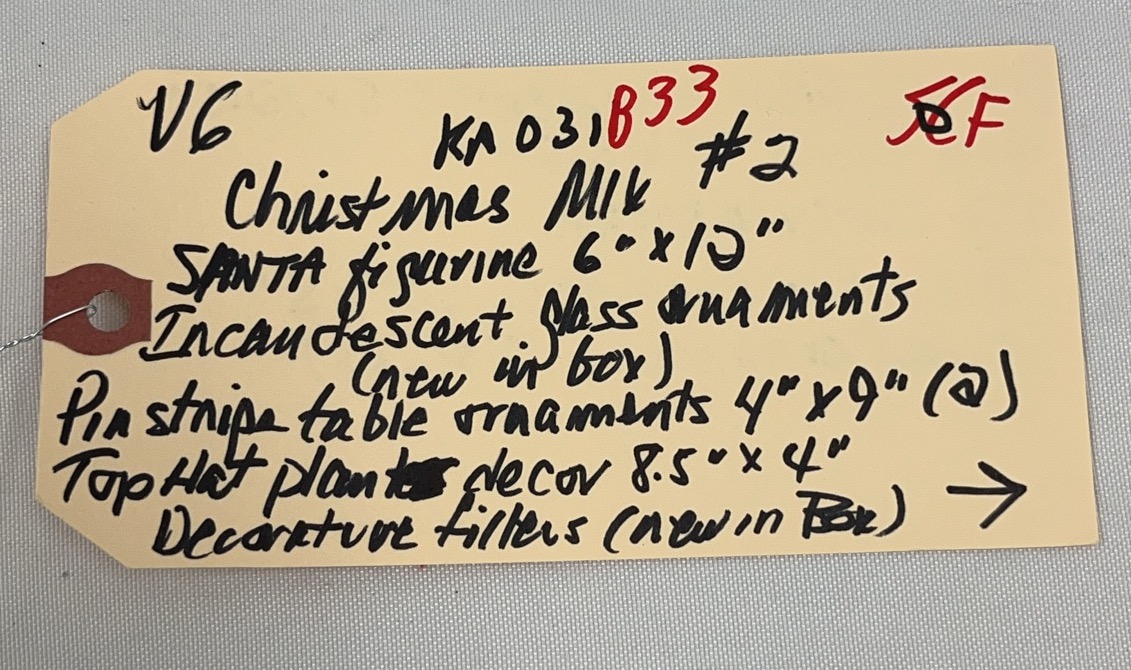 V6 KA031 B33 F
#2
Christmas Mix
SANTA figurine 6" x 12"
Incandescent glass ornaments
(new in box)
Pin stripe table ornaments 4" x 9" (2)
Top Hat plant decor 8.5" x 4"
Decorature fillers (new in Box) →